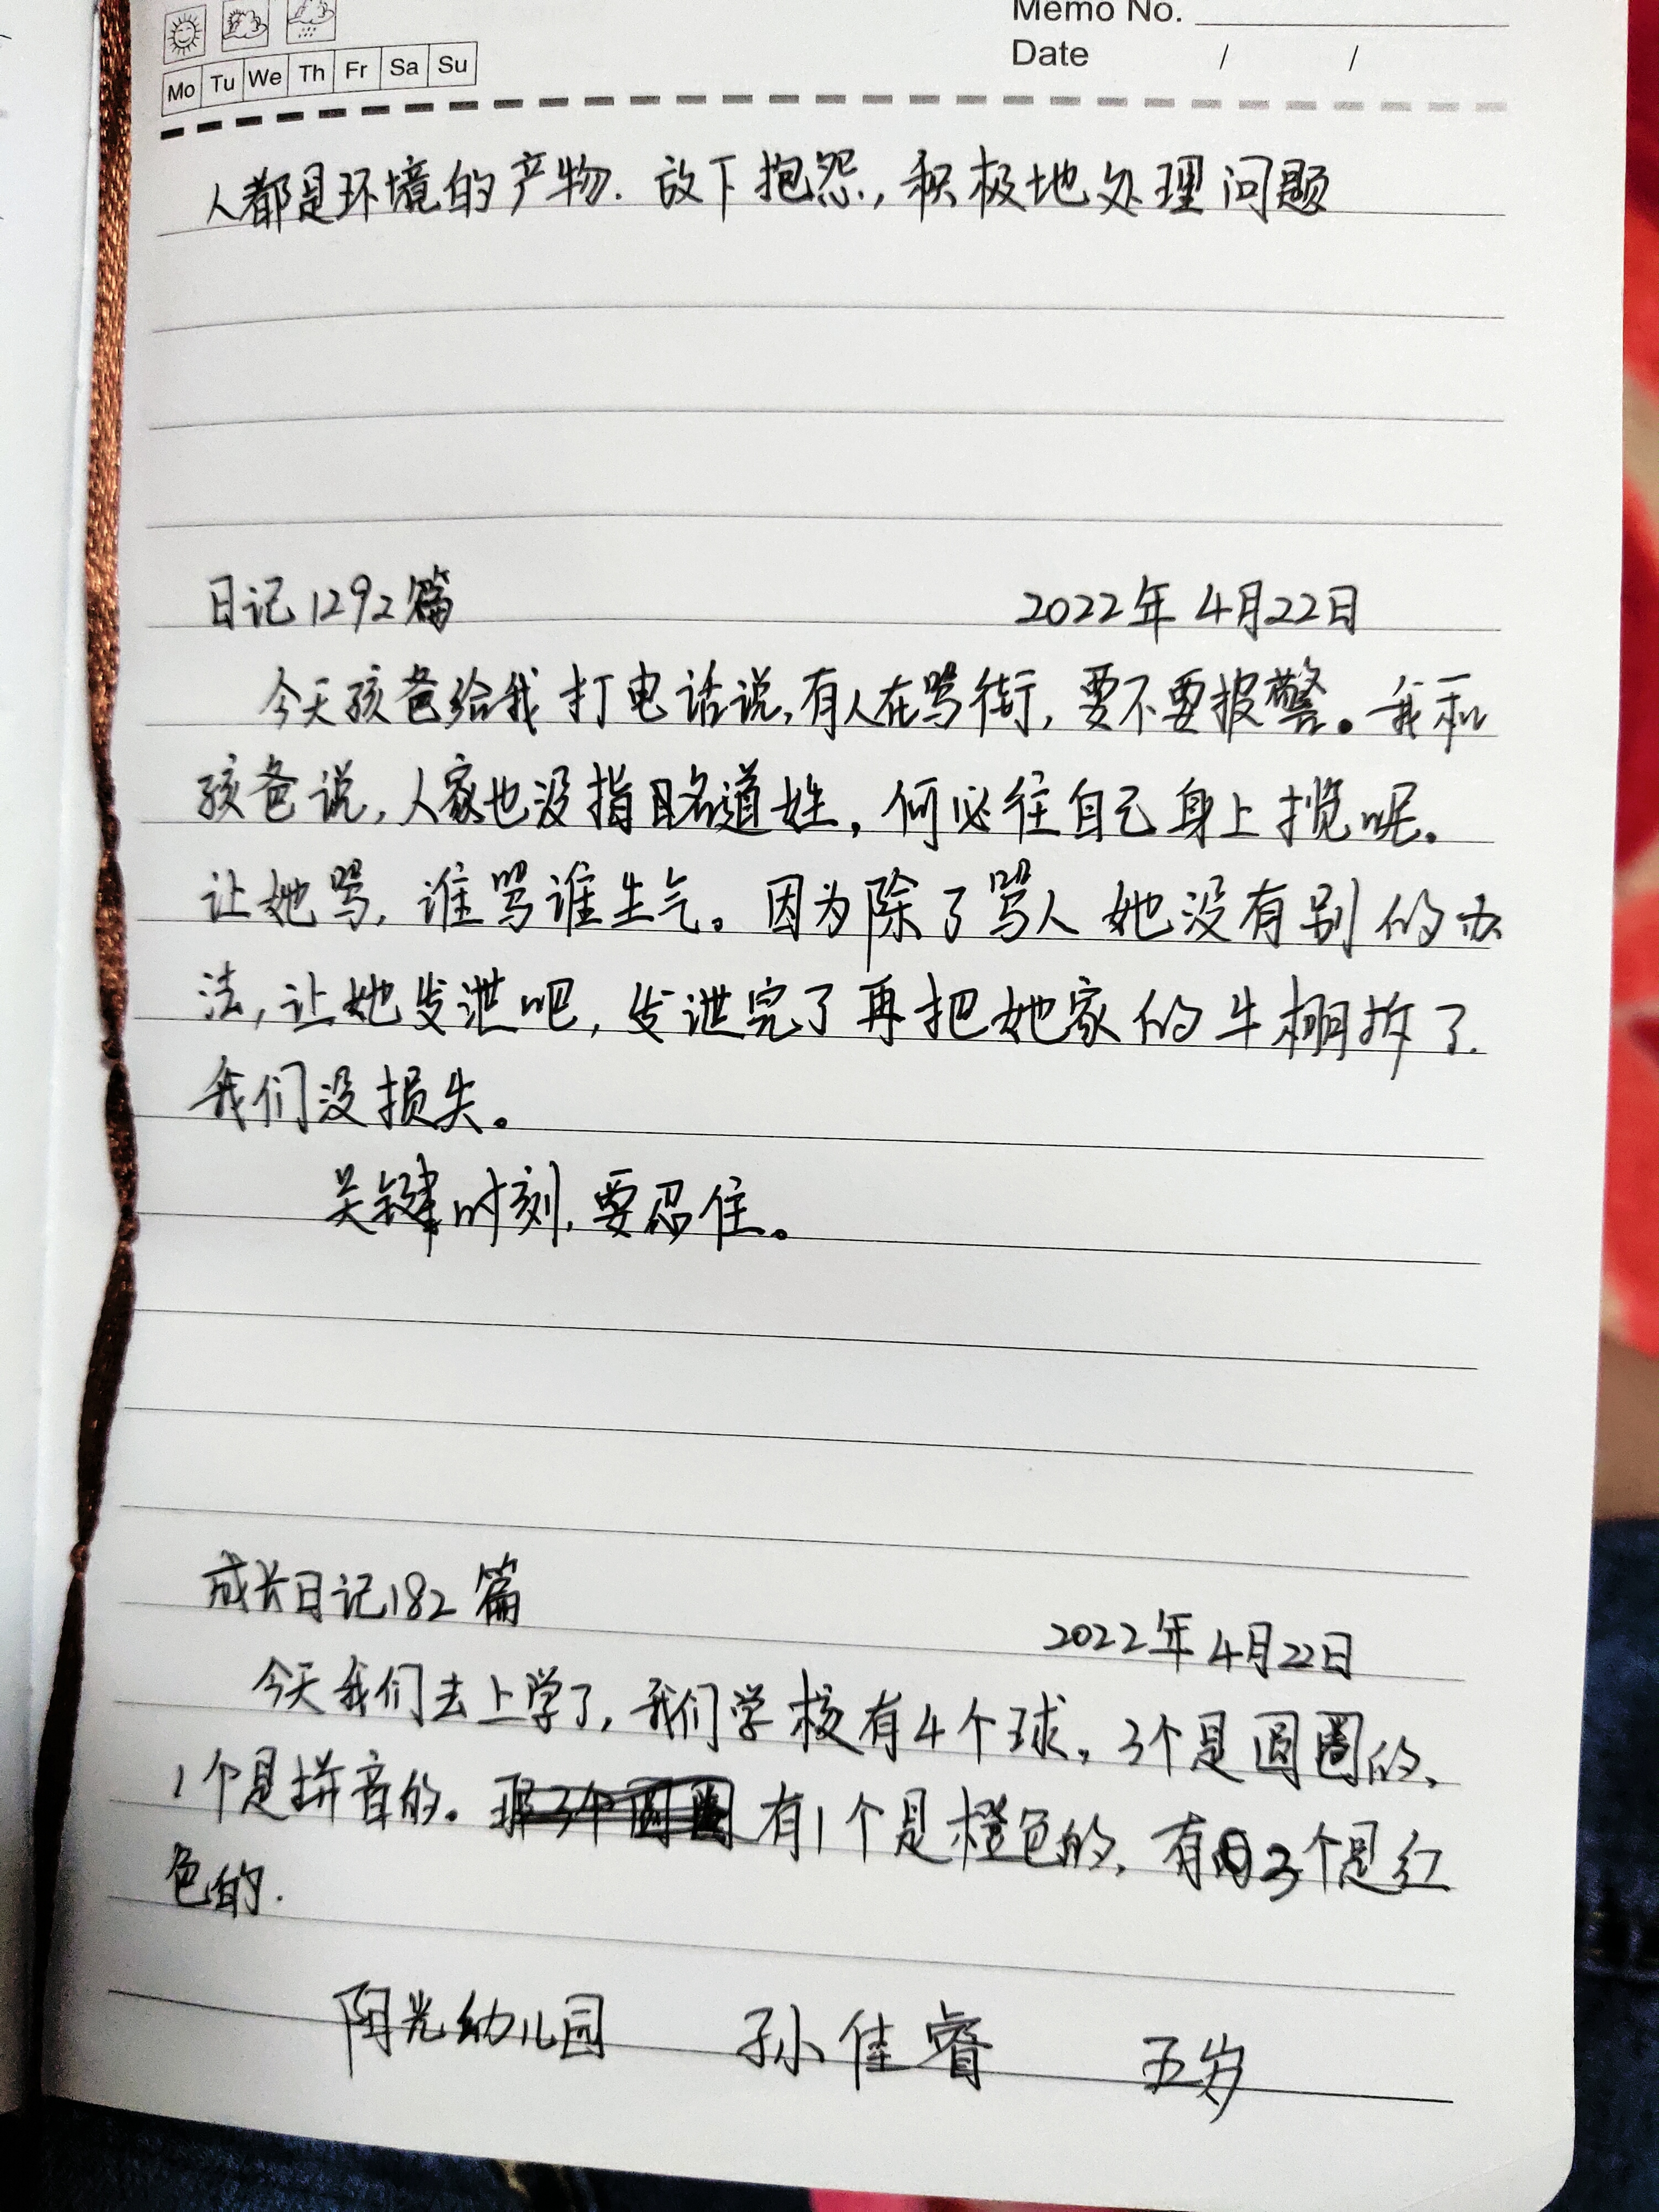 Memo No.
Mo Tu We Th Fr Sa Su
Date / /
人都是环境的产物.放下抱怨,积极地处理问题
日记1292篇 2022年4月22日
今天孩爸给我打电话说,有人在骂街,要不要报警。我和
孩爸说,人家也没指名道姓,何必往自己身上揽呢。
让她骂,谁骂谁生气。因为除了骂人她没有别的办
法,让她发泄吧,发泄完了再把她家的牛棚拆了.
我们没损失。
关键时刻,要忍住。
成长日记182篇 2022年4月22日
今天我们去上学了,我们学校有4个球,3个是圆圈的、
1个是拼音的。有1个是橙色的,有3个是红
色的.
阳光幼儿园 孙佳睿 五岁